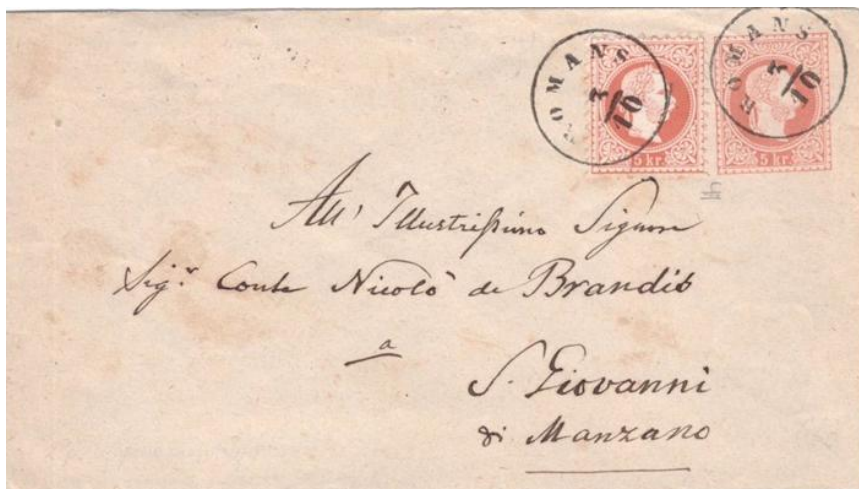 ROMANS
3/10
ROMANS
3/10
5 kr.
5 kr.
All' Illustrissimo Signore
Sigr. Conte Nicolò de Brandis
a
S. Giovanni
di Manzano